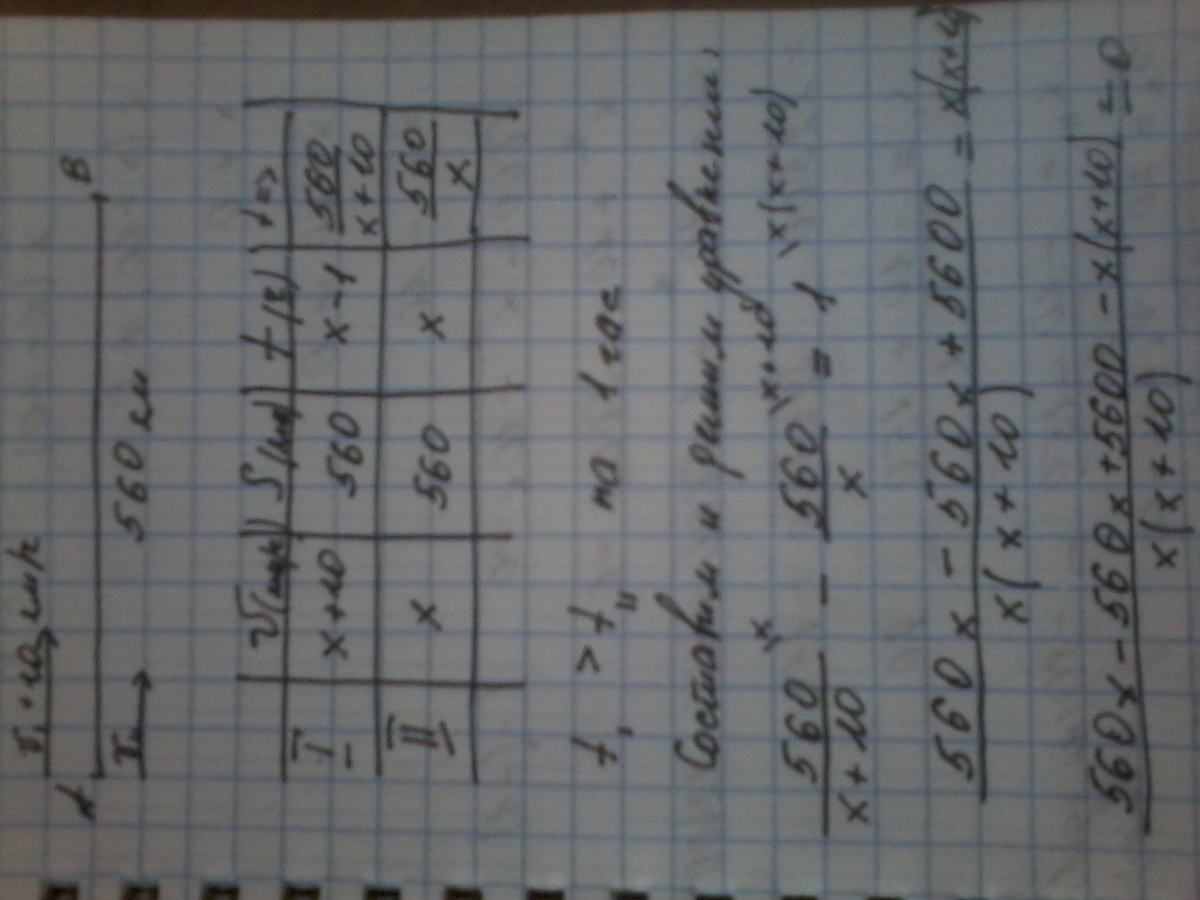 V₁ + 10 км/ч
A B
I → 560 км
V(км/ч) S(км) t(ч) t =>
I x+10 560 x-1 560/(x+10)
II x 560 x 560/x
t₁ > t₁₁ на 1 час
Составим и решим уравнение:
560/(x+10) \x - 560/x \x+10 = 1 \x(x+10)
(560x - 560x + 5600)/(x(x+10)) = x(x+10)
(560x - 560x + 5600 - x(x+10))/(x(x+10)) = 0